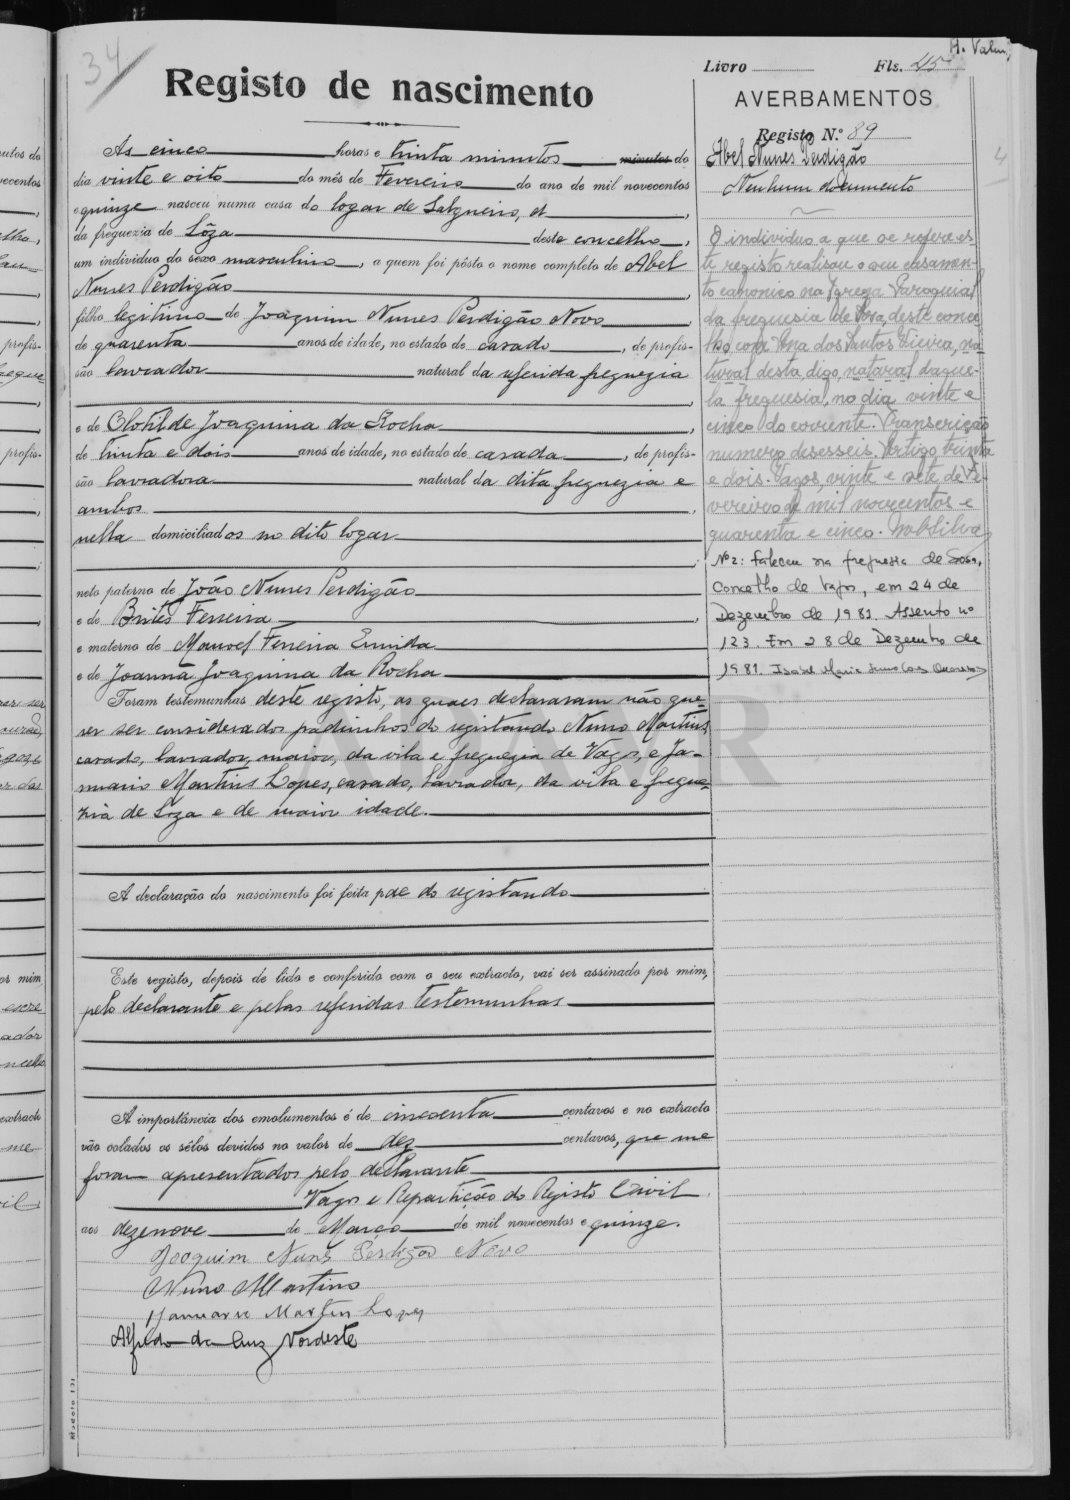 34
Registo de nascimento
Às cinco horas e trinta minutos minutos do
dia vinte e oito do mês de Fevereiro do ano de mil novecentos
e quinze nasceu numa casa do logar de Salgueiro, d
da freguezia de Sôza deste concelho,
um individuo do sexo masculino, a quem foi pôsto o nome completo de Abel
Nunes Perdigão,
filho legitimo de Joaquim Nunes Perdigão Novo,
de quarenta anos de idade, no estado de casado, de profis-
são lavrador natural da referida freguezia
,
e de Clotilde Joaquina da Rocha,
de trinta e dois anos de idade, no estado de casada, de profis-
são lavradora natural da dita freguezia e
ambos,
nella domiciliados no dito logar
;
neto paterno de João Nunes Perdigão
e de Brites Ferreira,
e materno de Manoel Ferreira
e de Joanna Joaquina da Rocha
Foram testemunhas deste registo, as quaes declararam não que-
rer ser considerados padrinhos do registando Nuno Martins,
casado, lavrador, maior, da vila e freguezia de Vagos, e Ja-
nuario Martins Lopes, casado, lavrador, da vila e fregue-
zia de Soza e de maior idade.
A declaração do nascimento foi feita pae do registando
Este registo, depois de lido e conferido com o seu extracto, vai ser assinado por mim,
pelo declarante e pelas referidas testemunhas
A importância dos emolumentos é de cincoenta centavos e no extracto
vão colados os sêlos devidos no valor de dez centavos, que me
foram apresentados pelo declarante
Vagos e Repartição do Registo Civil
aos dezenove de Março de mil novecentos e quinze.
Joaquim Nunes Perdigão Novo
Nuno Martins
Januario Martins Lopes
Alfredo da Cruz Nordeste
Livro Fls. 45
AVERBAMENTOS
Registo N.º 89
Abel Nunes Perdigão
Nenhum documento
O individuo a que se refere es-
te registo realisou o seu casamen-
to canonico na Igreja Paroquial
da freguesia de Sosa, deste conce-
lho com Ana dos Santos Vieira, na-
tural desta, digo, natural daque-
la freguesia, no dia vinte e
cinco do corrente. Transcrição
numero desesseis. Artigo trinta
e dois. Vagos, vinte e sete de Fe-
vereiro de mil novecentos e
quarenta e cinco.
Nº 2: Faleceu na freguesia de Sosa,
Concelho de Vagos, em 24 de
Dezembro de 1981. Assento nº
123. Em 28 de Dezembro de
1981. Isabel Maria
4